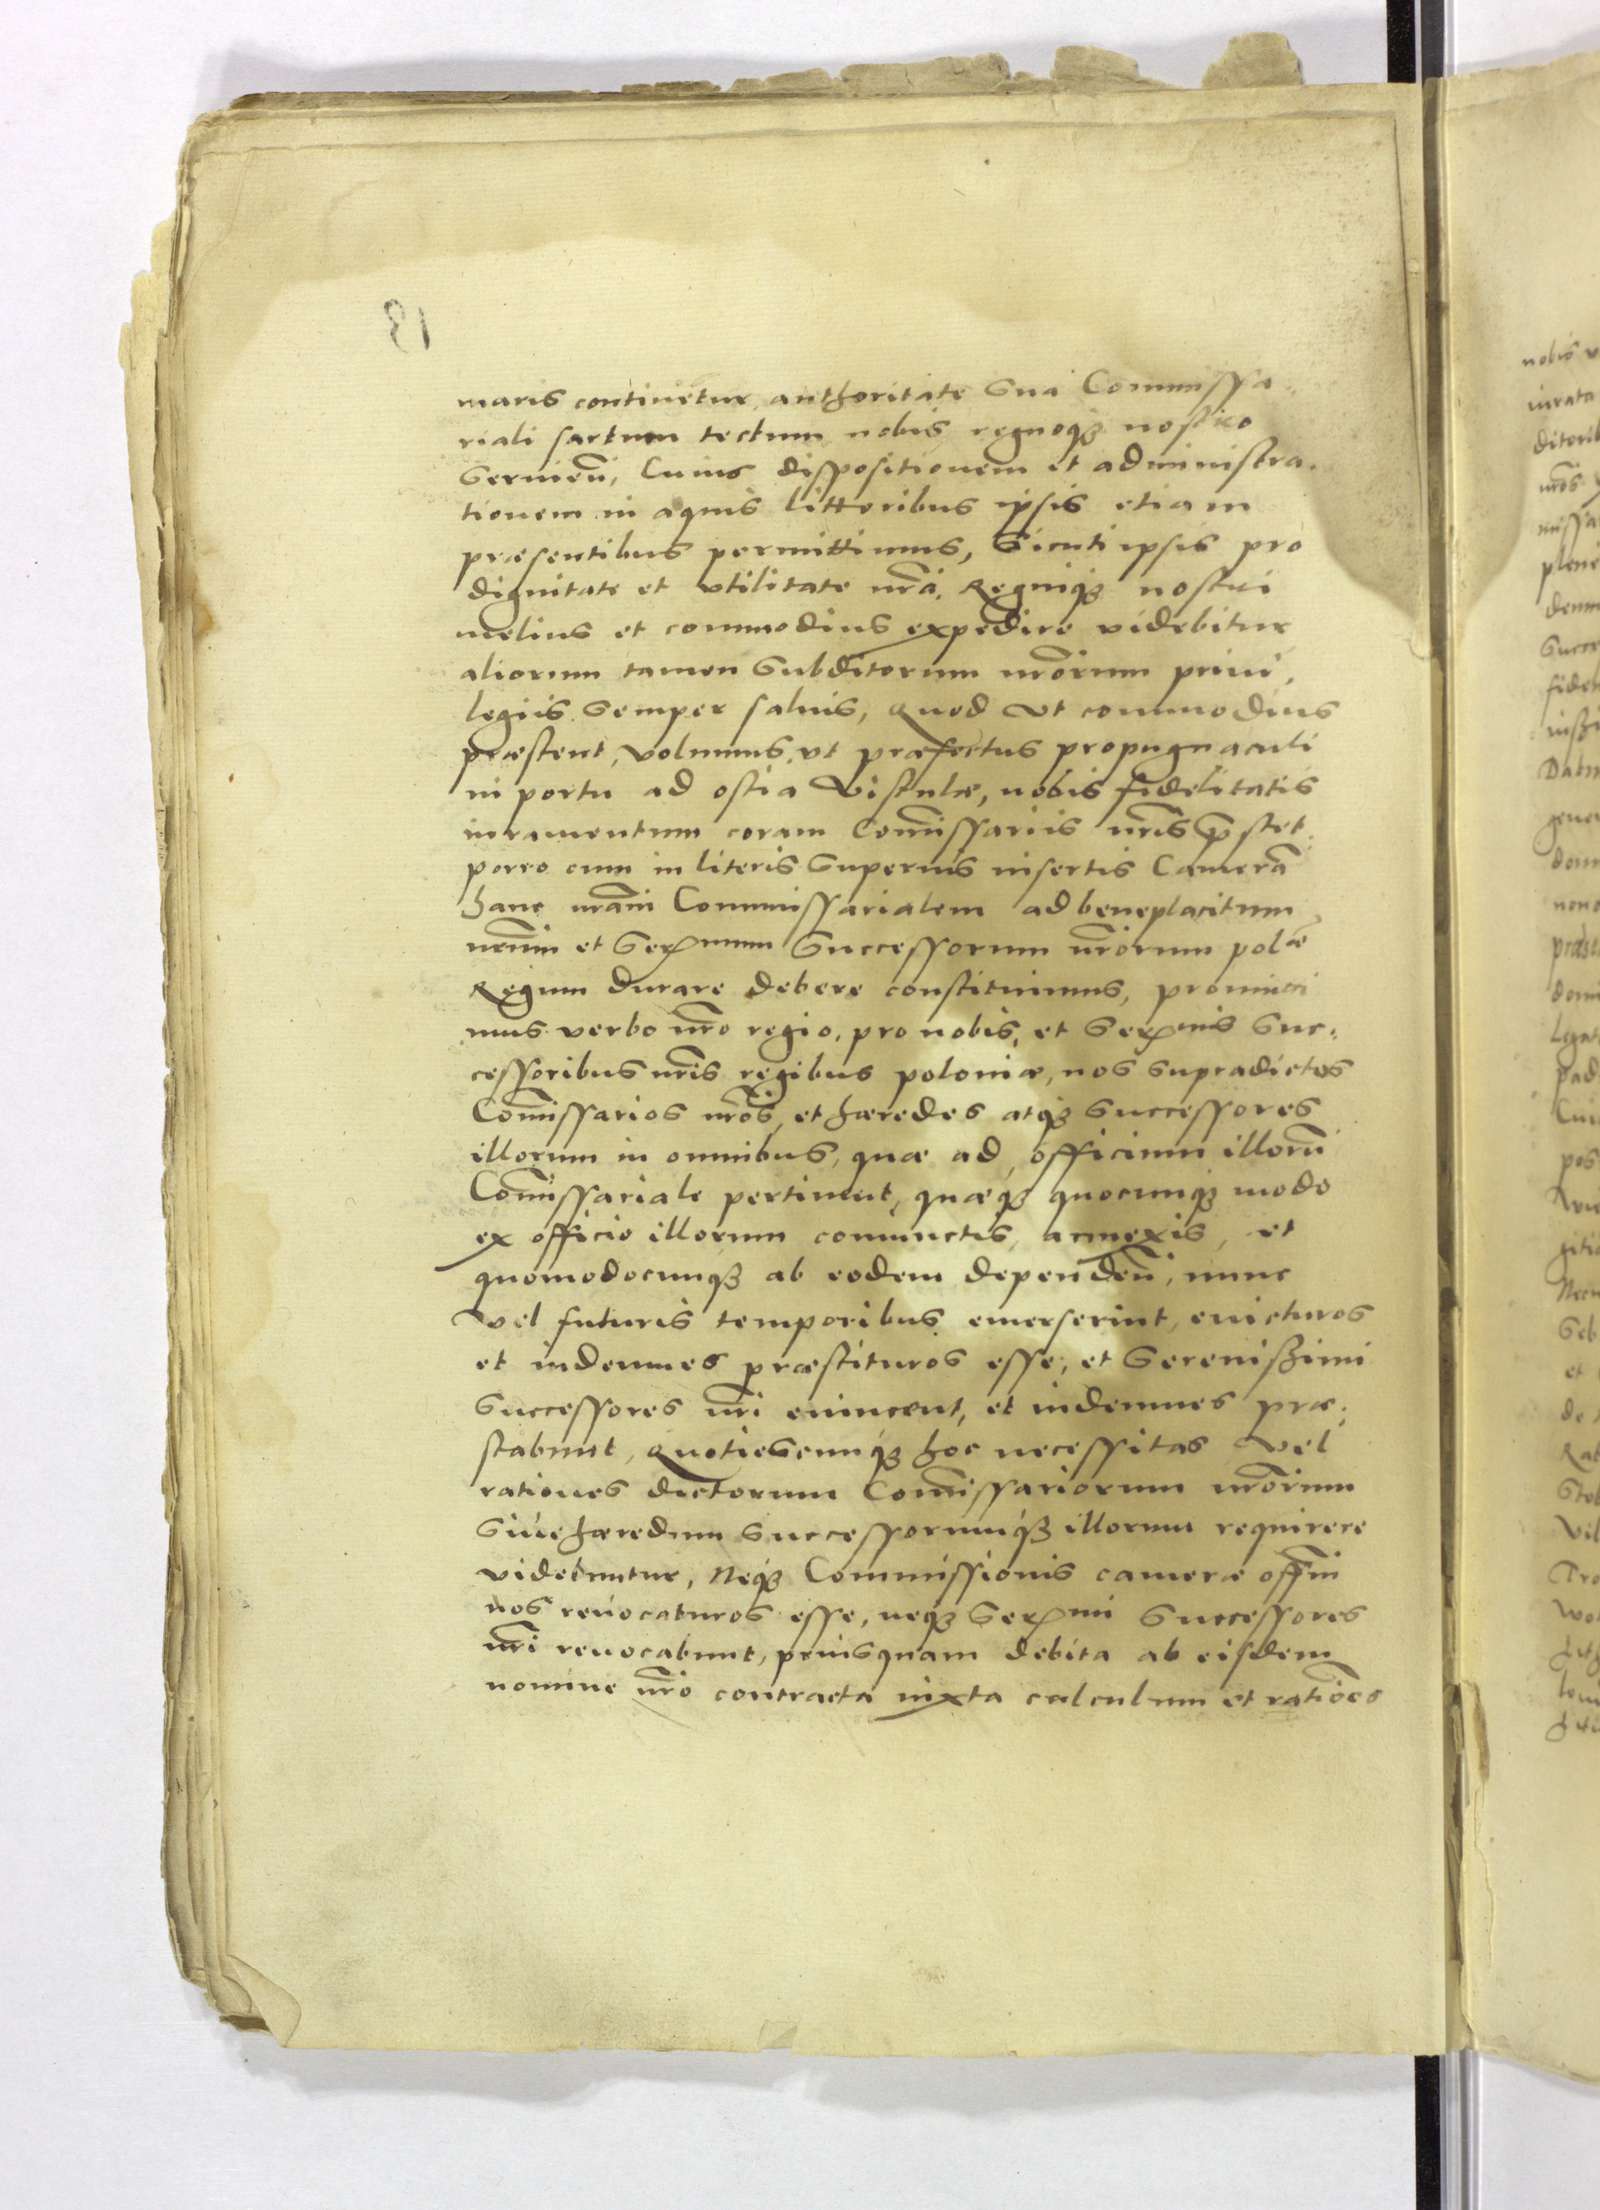 13
maris continetur, authoritate sua Commissa
riali sartum tectum nobis regnoq₃ nostro
seruieñ, Cuius dispositionem et administra-
tionem in aquis littoribus ipsis etiam
præsentibus permittimus, Sicuti ipsis pro
dignitate et vtilitate nr̃a, Regniq₃ nostri
melius et commodius expedire videbitur
aliorum tamen Subditorum nr̃orum priui,
legiis semper saluis, Quod vt commodius
præstent, volumus, vt præfectus propugnaculi
in portu ad ostia Vistulæ, nobis fidelitatis
iuramentum coram Com̃issariis nr̃is p̄stet.
porro cum in literis superius insertis Camerã
hanc nr̃am Commissarialem ad beneplacitum
nr̃um et Ser̃mum Successorum nr̃orum polæ̃
Regum durare debere constituimus, promitti
mus verbo nr̃o regio, pro nobis, et Ser̃mis Suc-
cessoribus nr̃is regibus poloniæ, nos supradictos
Com̃issarios nr̃os, et hæredes atq₃ Successores
illorum in omnibus, quæ ad officium illorũ
Com̃issariale pertinent, quæq₃ quocunq₃ modo
ex officio illorum coniunctis, annexis, et
quomodocunq₃ ab eodem dependeñ, nunc
vel futuris temporibus emerserint, euicturos
et indemnes præstituros esse, et Serenißimi
Successores nr̃i euincent, et indemnes præ-
stabunt, Quotiescunq₃ hoc necessitas vel
rationes dictorum Com̃issariorum nr̃orum
siue hæredum Successorumq₃ illorum requirere
videbuntur, Neq₃ Commissionis cameræ off̃m
nos reuocaturos esse, neq₃ Ser̃mi Successores
nr̃i reuocabunt, priusquam debita ab eisdem
nomine nr̃o contracta iuxta calculum et ratiões